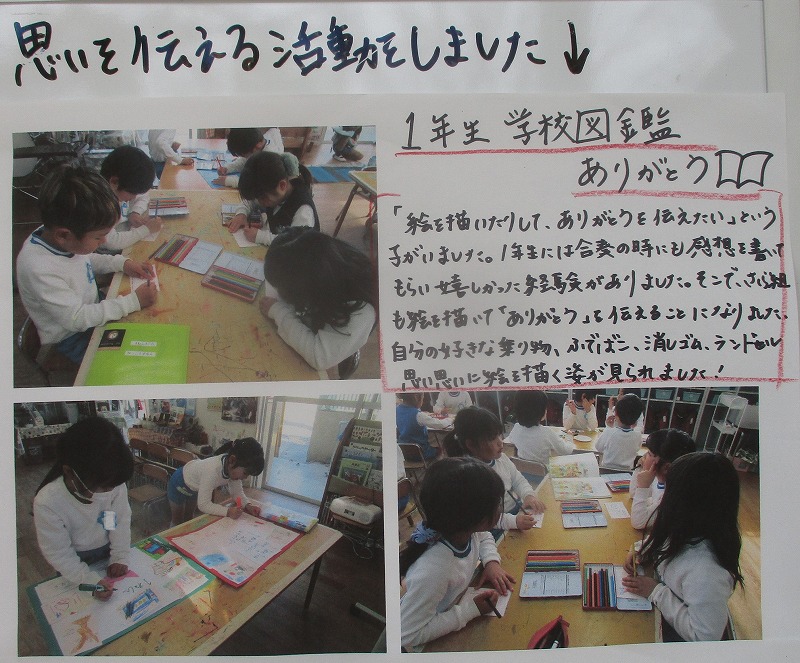 思いを伝える活動をしました↓
1年生 学校図鑑
ありがとう
「絵を描いたりして、ありがとうを伝えたい」という
子がいました。1年生には合奏の時にも感想を書いて
もらい嬉しかった経験がありました。そこで、さくら組
も絵を描いて「ありがとう」を伝えることになりました。
自分の好きな乗り物、ふでばこ、消しゴム、ランドセル
思い思いに絵を描く姿が見られました！